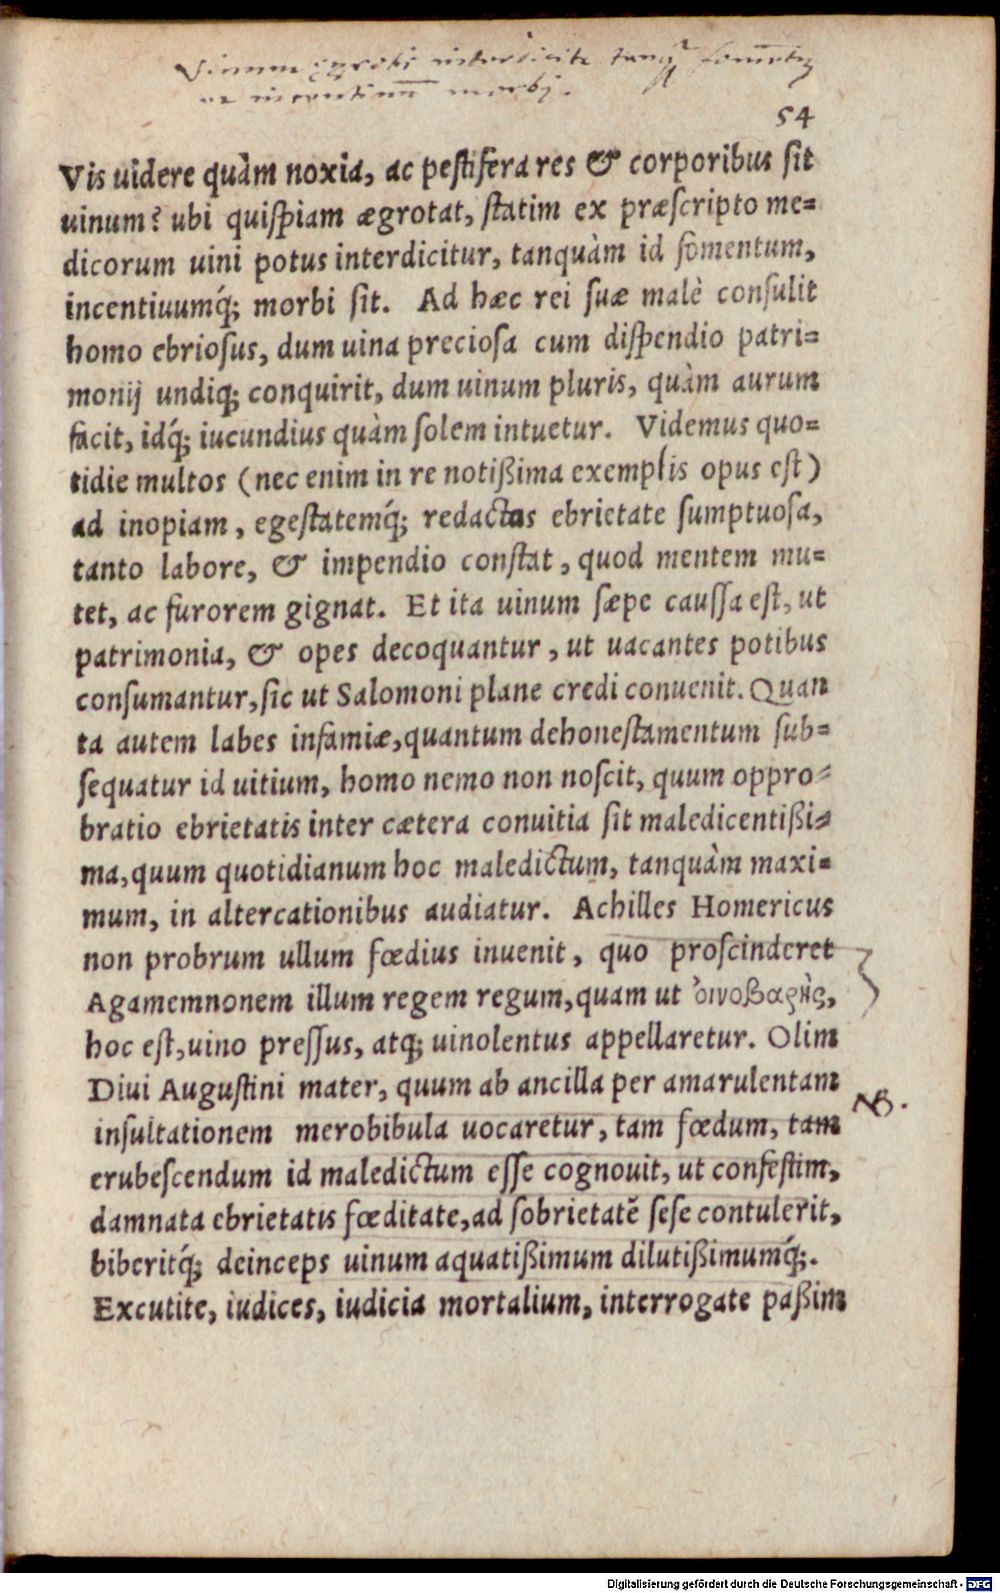 Vinum ægrotis interdicite tanq̃
morbi.
54
Vis uidere quàm noxia, ac pestifera res & corporibus sit
uinum? ubi quispiam ægrotat, statim ex præscripto me=
dicorum uini potus interdicitur, tanquàm id fomentum,
incentiuumq́; morbi sit. Ad hæc rei suæ malè consulit
homo ebriosus, dum uina preciosa cum dispendio patri=
monij undiq; conquirit, dum uinum pluris, quàm aurum
facit, idq́; iucundius quàm solem intuetur. Videmus quo=
tidie multos (nec enim in re notißima exemplis opus est)
ad inopiam, egestatemq́; redactos ebrietate sumptuosa,
tanto labore, & impendio constat, quod mentem mu=
tet, ac furorem gignat. Et ita uinum sæpe caussa est, ut
patrimonia, & opes decoquantur, ut uacantes potibus
consumantur, sic ut Salomoni plane credi conuenit. Quan
ta autem labes infamiæ, quantum dehonestamentum sub=
sequatur id uitium, homo nemo non noscit, quum oppro=
bratio ebrietatis inter cætera conuitia sit maledicentißi=
ma, quum quotidianum hoc maledictum, tanquàm maxi=
mum, in altercationibus audiatur. Achilles Homericus
non probrum ullum fœdius inuenit, quo proscinderet
Agamemnonem illum regem regum, quam ut ὀινοβαρὴς,
hoc est, uino pressus, atq; uinolentus appellaretur. Olim
Diui Augustini mater, quum ab ancilla per amarulentam
NB.
insultationem merobibula uocaretur, tam fœdum, tam
erubescendum id maledictum esse cognouit, ut confestim,
damnata ebrietatis fœditate, ad sobrietatẽ sese contulerit,
biberitq́; deinceps uinum aquatißimum dilutißimumq́;.
Excutite, iudices, iudicia mortalium, interrogate paßim
Digitalisierung gefördert durch die Deutsche Forschungsgemeinschaft - DFG